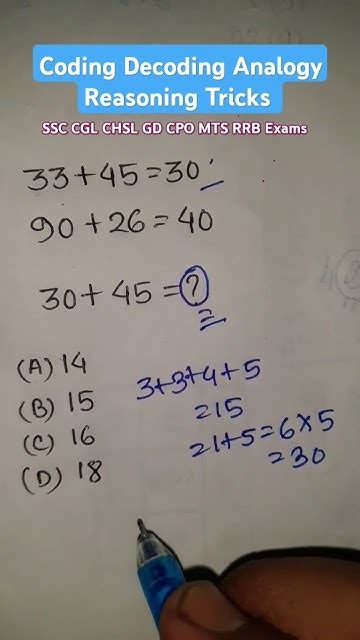 Coding Decoding Analogy
Reasoning Tricks
SSC CGL CHSL GD CPO MTS RRB Exams
33+45=30
90+26=40
30+45=?
(A) 14
(B) 15
(C) 16
(D) 18
3+3+4+5
=15
=1+5=6×5
=30